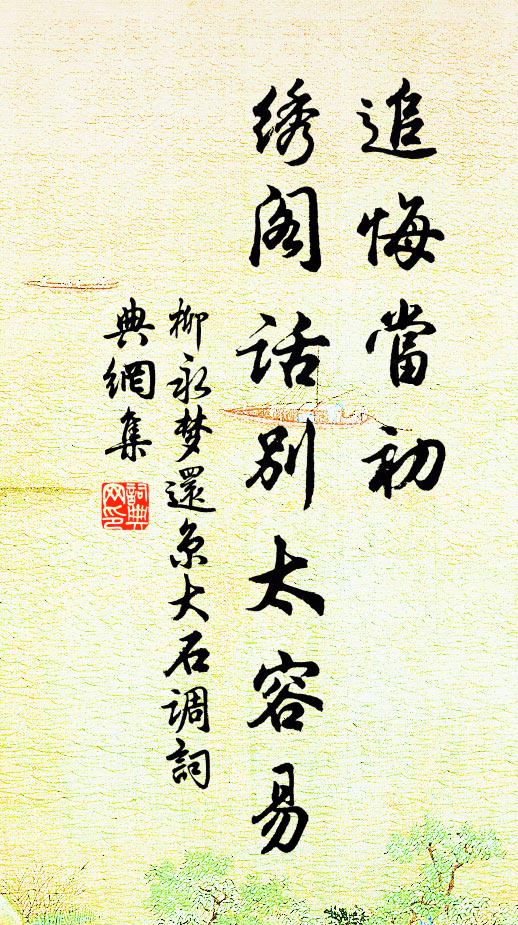 追悔當初
绣阁话别太容易
柳永梦還京大石调詞
典網集
詞典网印